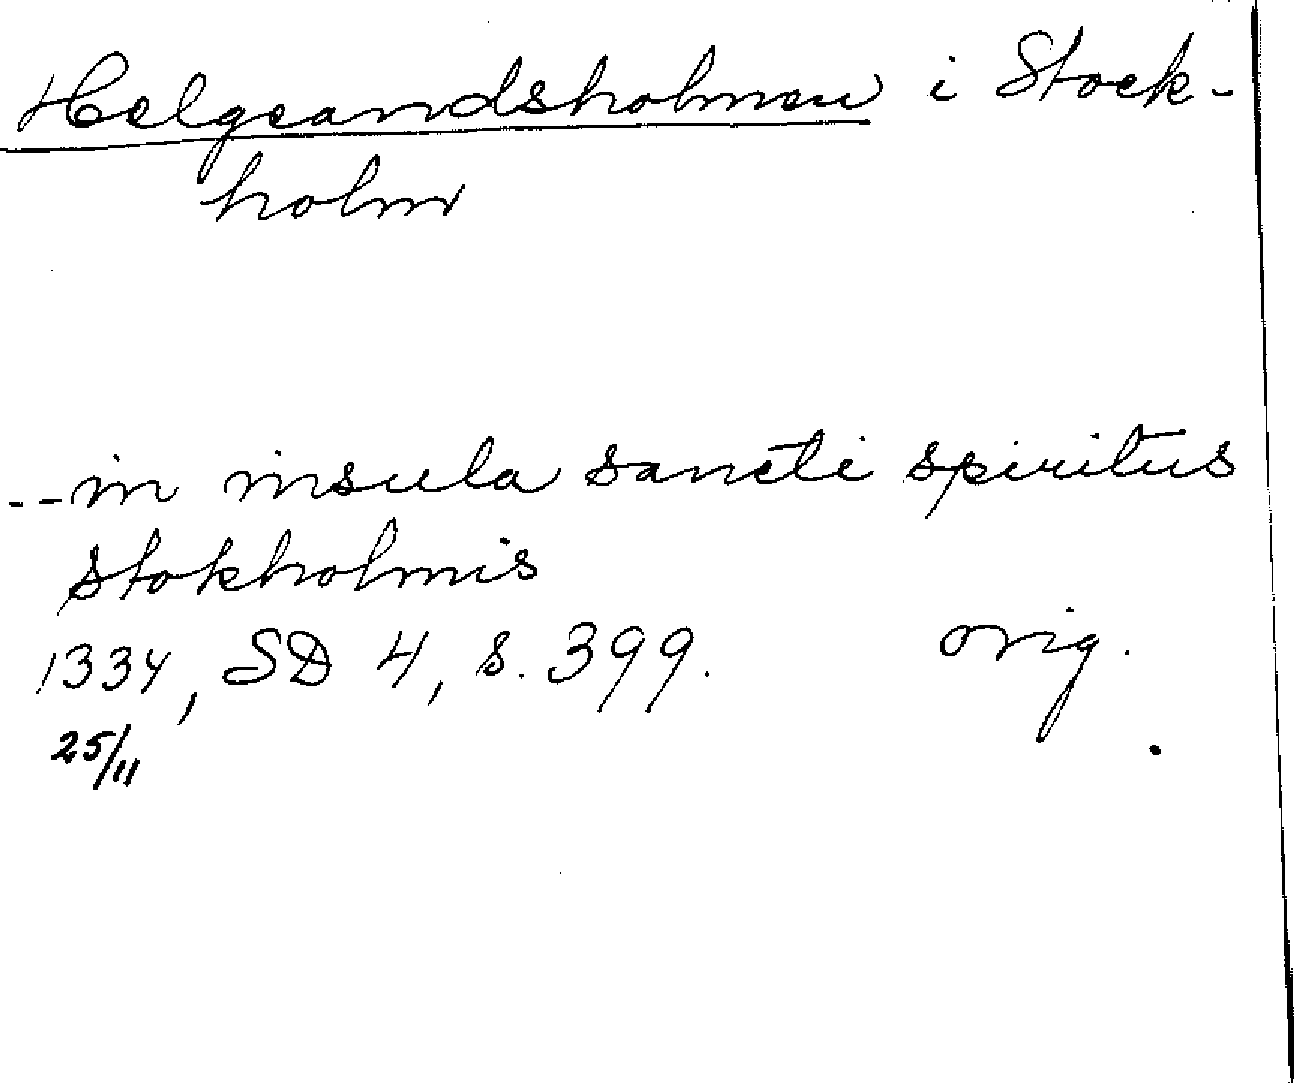 Helgeandsholmen i Stock-
holm
--in insula sancti spiritus
stokholmis
1334, SD 4, s. 399. orig.
25/11